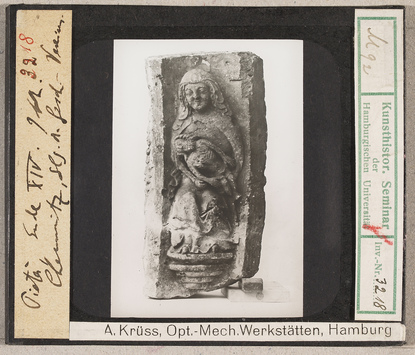 Pietà Ende XIV. Jhh. 3218
Chemnitz, Slg. d. Gesch. Verein.
Mg 2
Kunsthistor. Seminar
der
Hamburgischen Universität
Inv.-Nr. 3218
A. Krüss, Opt.-Mech.Werkstätten, Hamburg